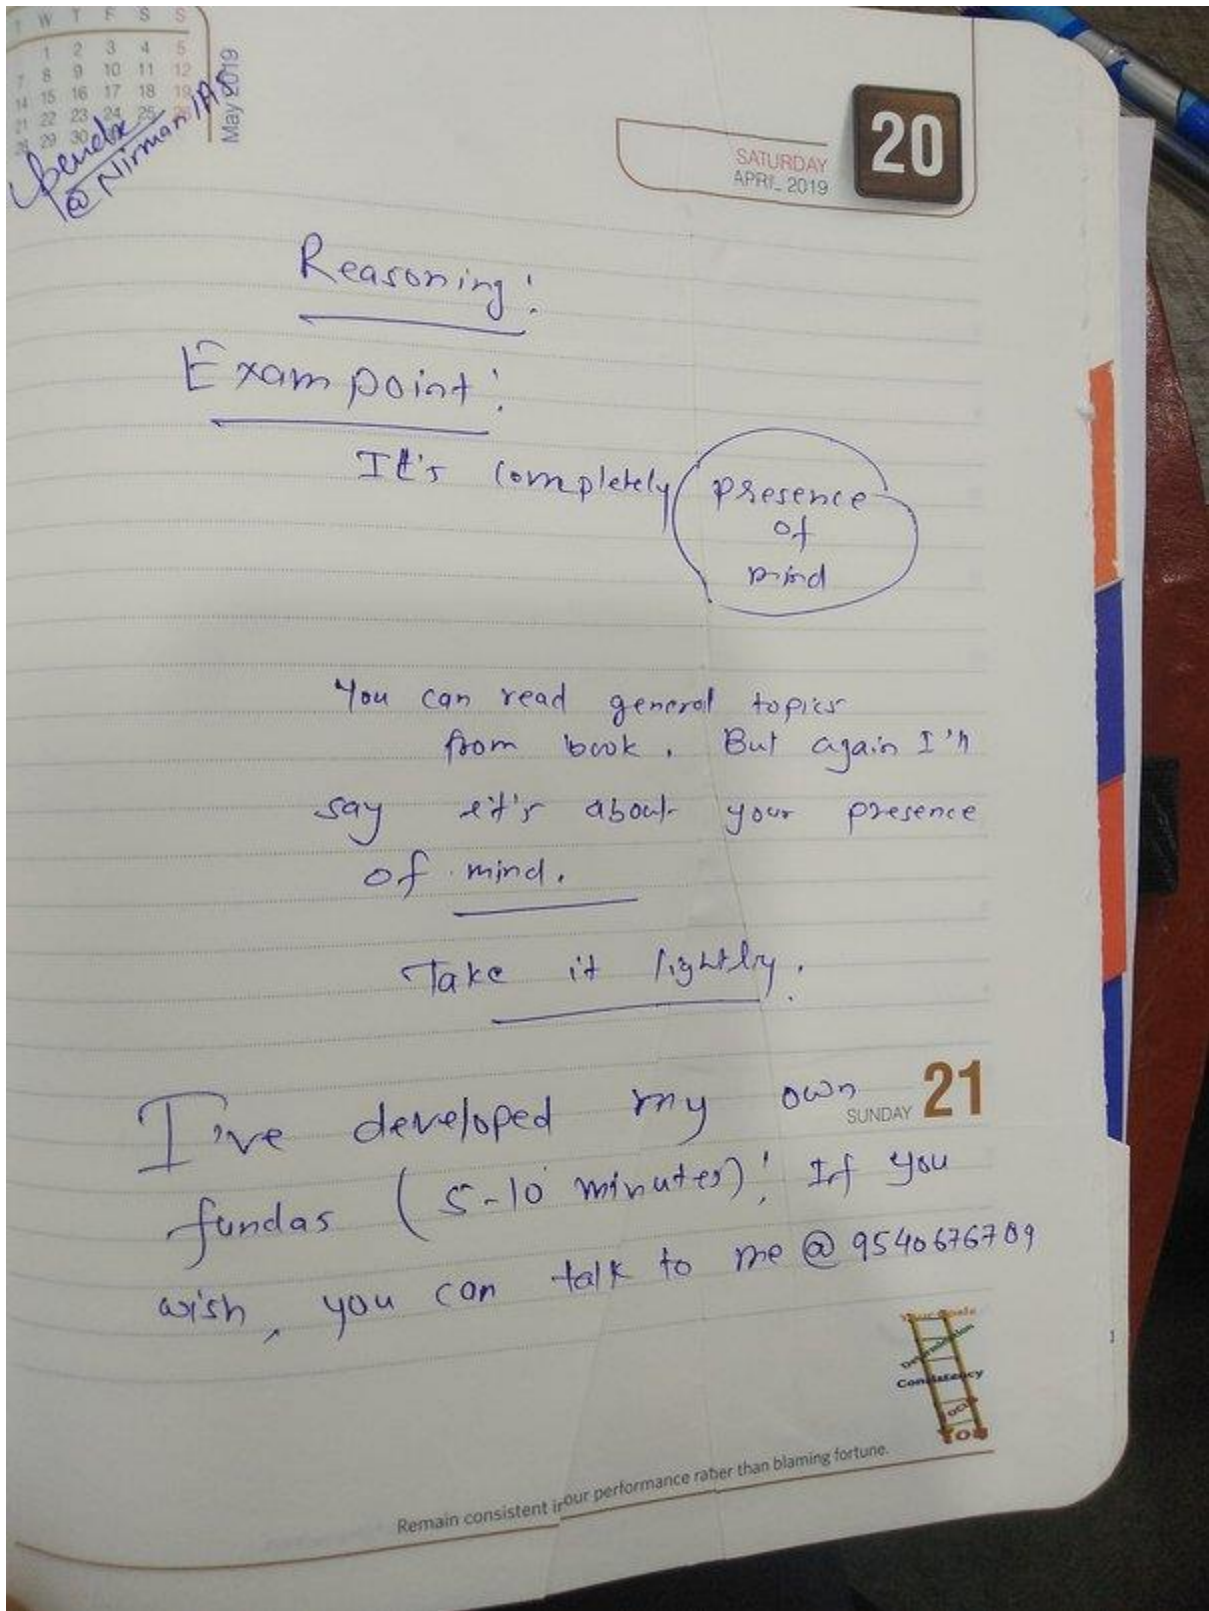 T W T F S S
1 2 3 4 5
7 8 9 10 11 12
14 15 16 17 18 19
21 22 23 24 25 26
28 29 30
May 2019
@ Nirman IAS
20
SATURDAY
APRIL 2019
Reasoning:
Exam point:
It's completely presence
of
mind
You can read general topics
from book. But again I'll
say it's about your presence
of mind.
Take it lightly.
21
SUNDAY
I've developed my own
fundas (5-10 minutes)! If you
wish, you can talk to me @ 9540676789
Your Goals
Determination
Consistency
Focus
You
1
Remain consistent in our performance rather than blaming fortune.